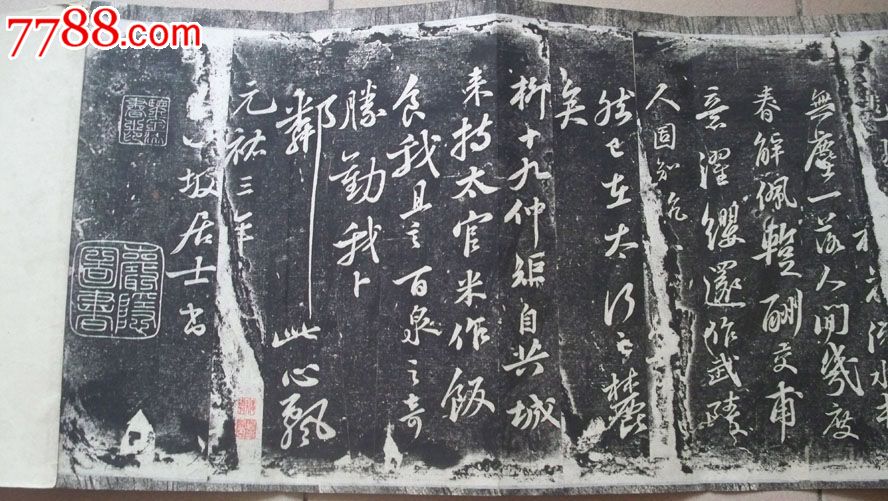 7788.com
無塵一落人間幾度
春解佩暫酬交甫
意濯纓還作武陵
人固知
然已在太行之麓
矣
柳十九仲矩自共城
来持太官米作飯
食我且言百泉之奇
勝勸我卜
鄰此心飄
元祐三年
坡居士書